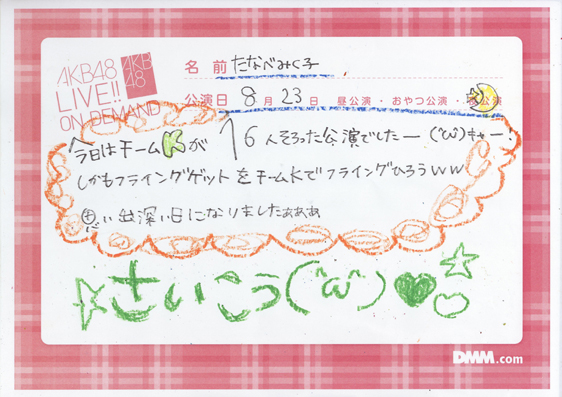 AKB48
LIVE!!
ON DEMAND
AKB
48
名前 たなべみく子
公演日 8月23日 昼公演・おやつ公演・夜公演
今日はチームKが16人そろった公演でしたー(^ω^)キャー!
しかもフライングゲットをチームKでフライングひろうww
思い出深い日になりましたぁぁぁ
さいこう(^ω^)
DMM.com